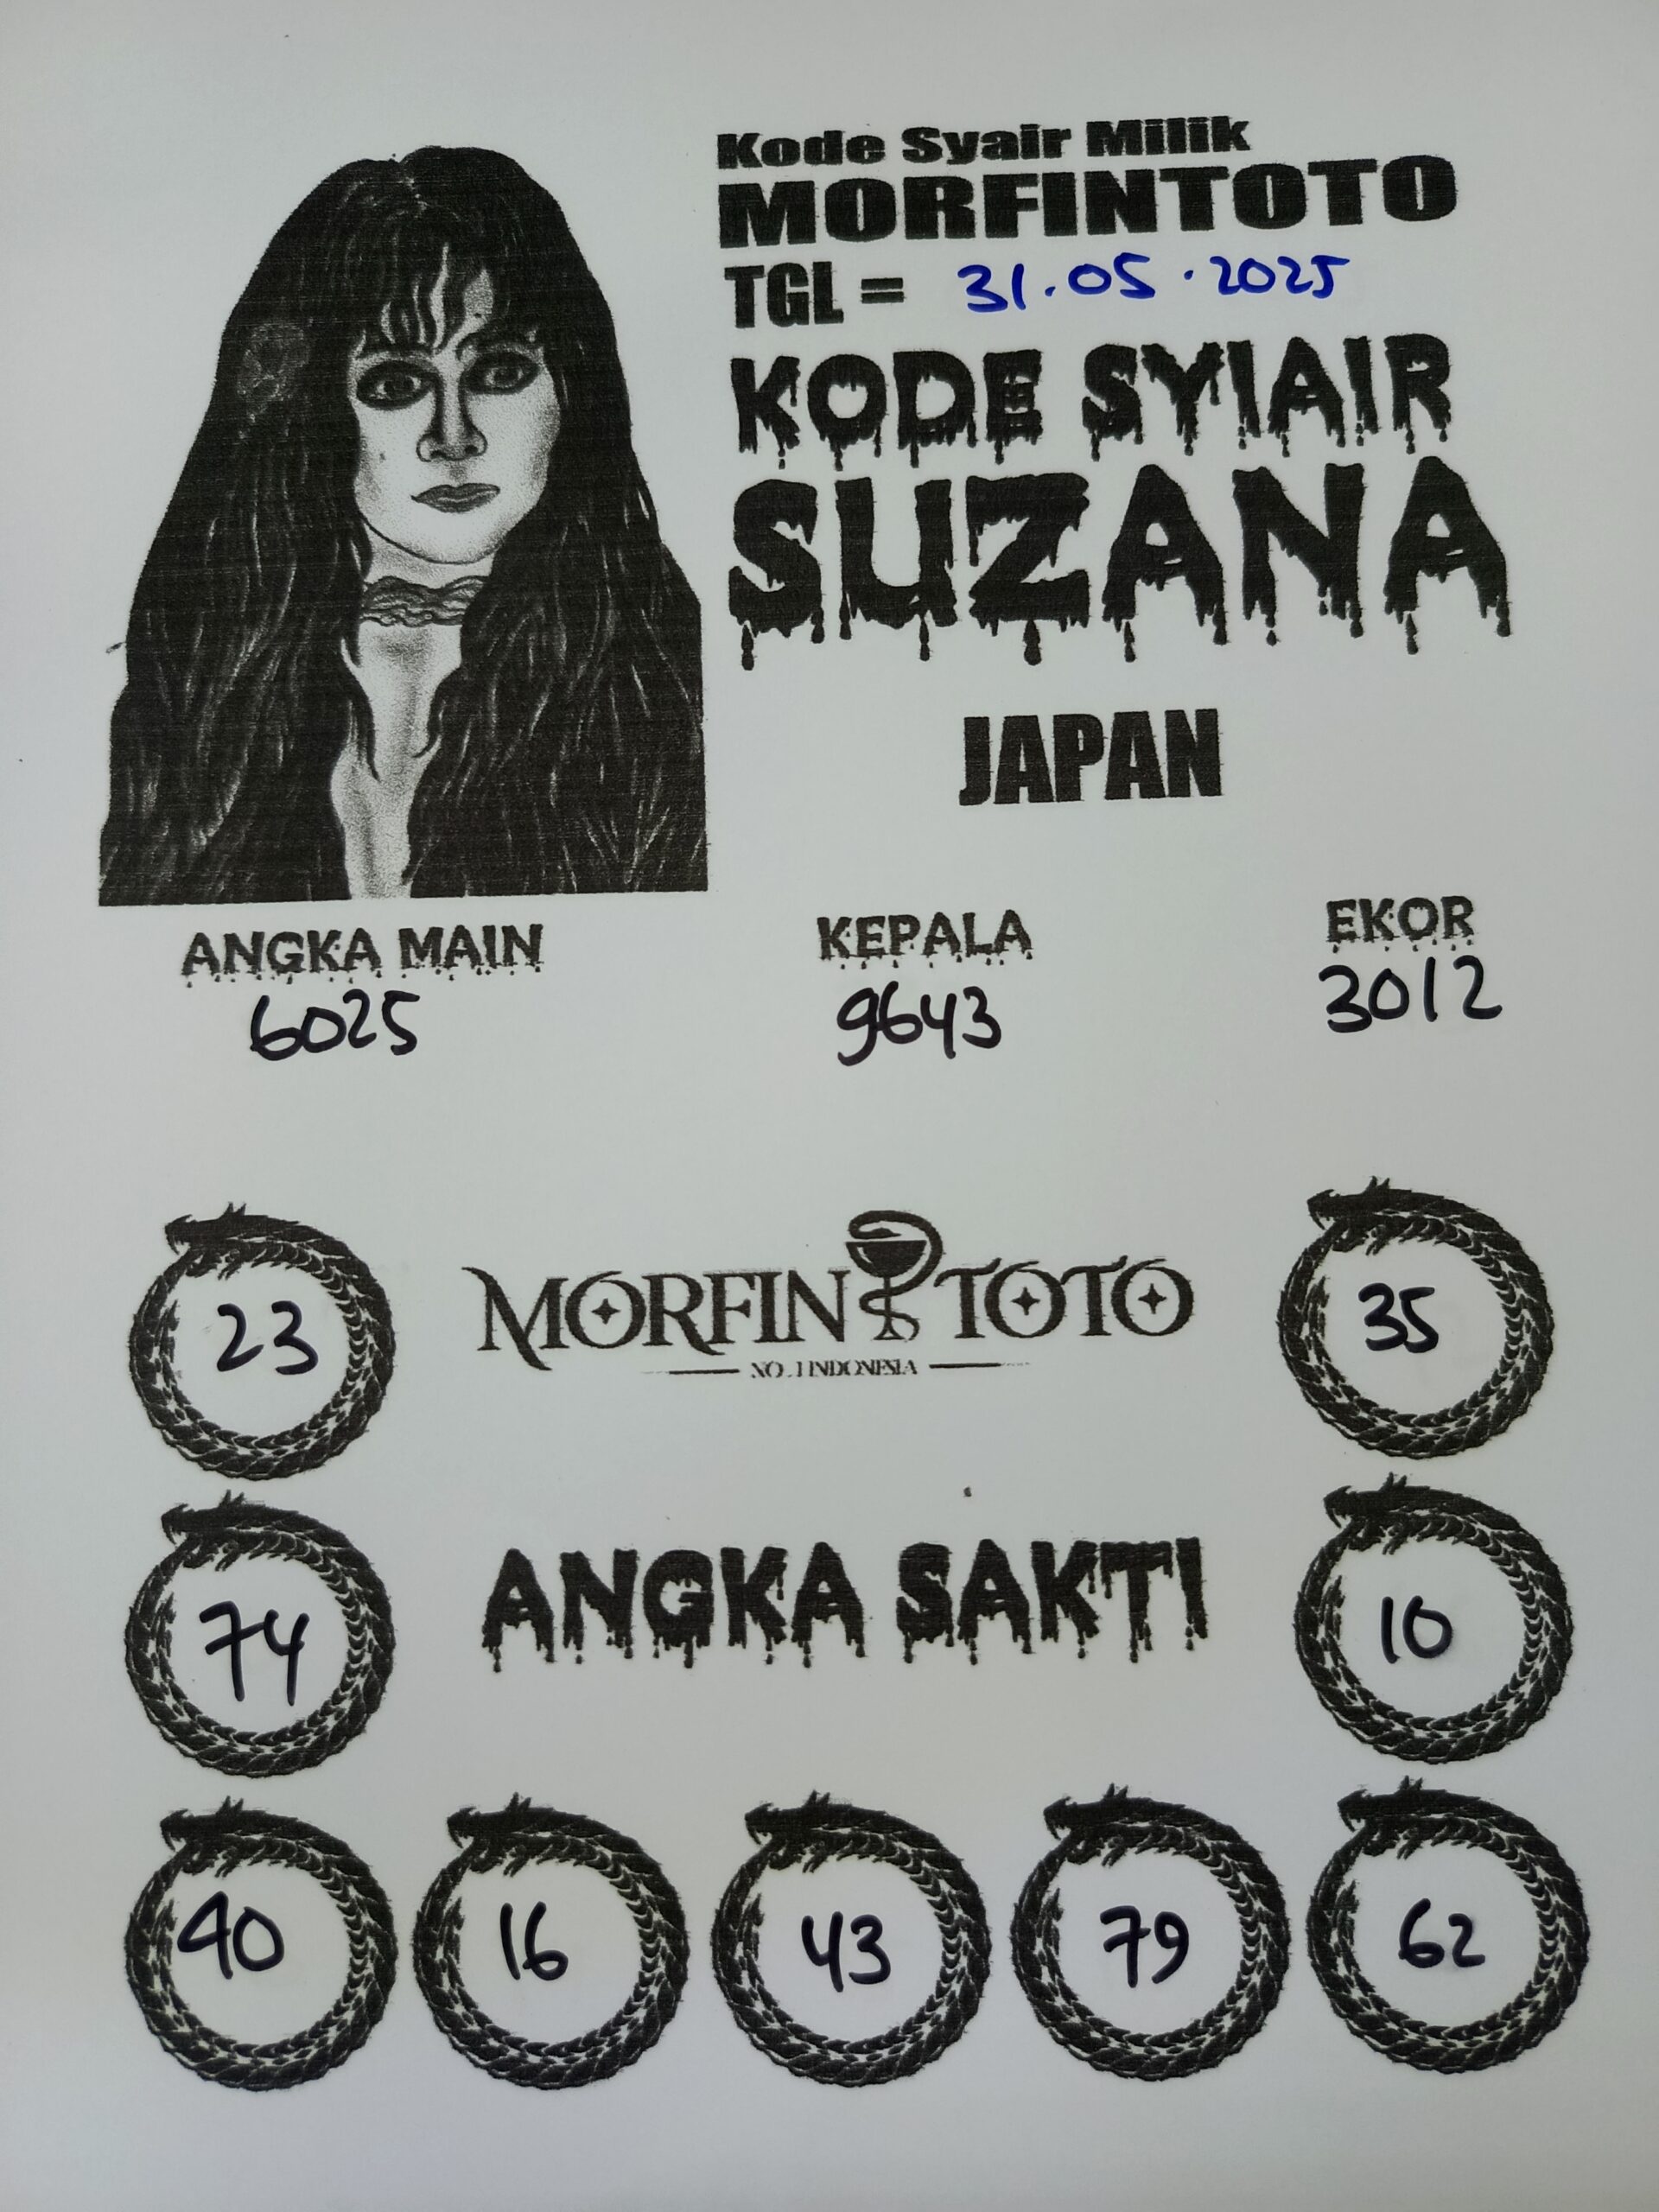 Kode Syair Milik
MORFINTOTO
TGL = 31.05.2025
KODE SYIAIR
SUZANA
JAPAN
ANGKA MAIN KEPALA EKOR
6025 9643 3012
23 MORFIN TOTO 35
NO.1 INDONESIA
74 ANGKA SAKTI 10
40 16 43 79 62